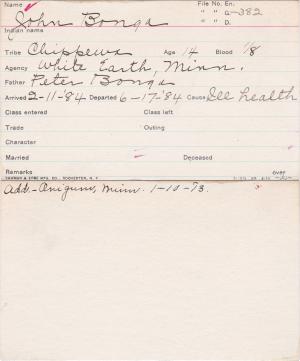 Name John Bonga File No. En.
" " G-382
" " D.
Indian name
Tribe Chippewa Age 14 Blood 1/8
Agency White Earth, Minn.
Father Peter Bonga
Arrived 2-11-'84 Departed 6-17-'84 Cause Ill health
Class entered Class left
Trade Outing
Character
Married Deceased
Remarks over
Add- Minn. 1-10-'13.